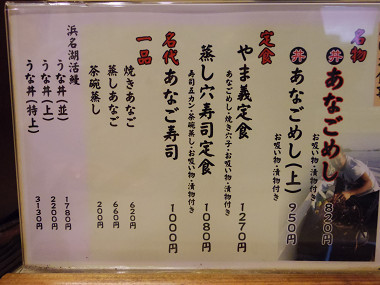 名物
丼 あなごめし 820円
お吸い物・漬物付き
丼 あなごめし(上) 950円
お吸い物・漬物付き
定食
やま義定食 1270円
あなごめし・焼き穴子・お吸い物・漬物付き
蒸し穴寿司定食 1080円
寿司五カン・茶碗蒸し・お吸い物・漬物付き
名代
あなご寿司 1000円
一品
焼きあなご 620円
蒸しあなご 660円
茶碗蒸し 200円
浜名湖活鰻
うな丼(並) 1780円
うな丼(上) 2200円
うな丼(特上) 3130円